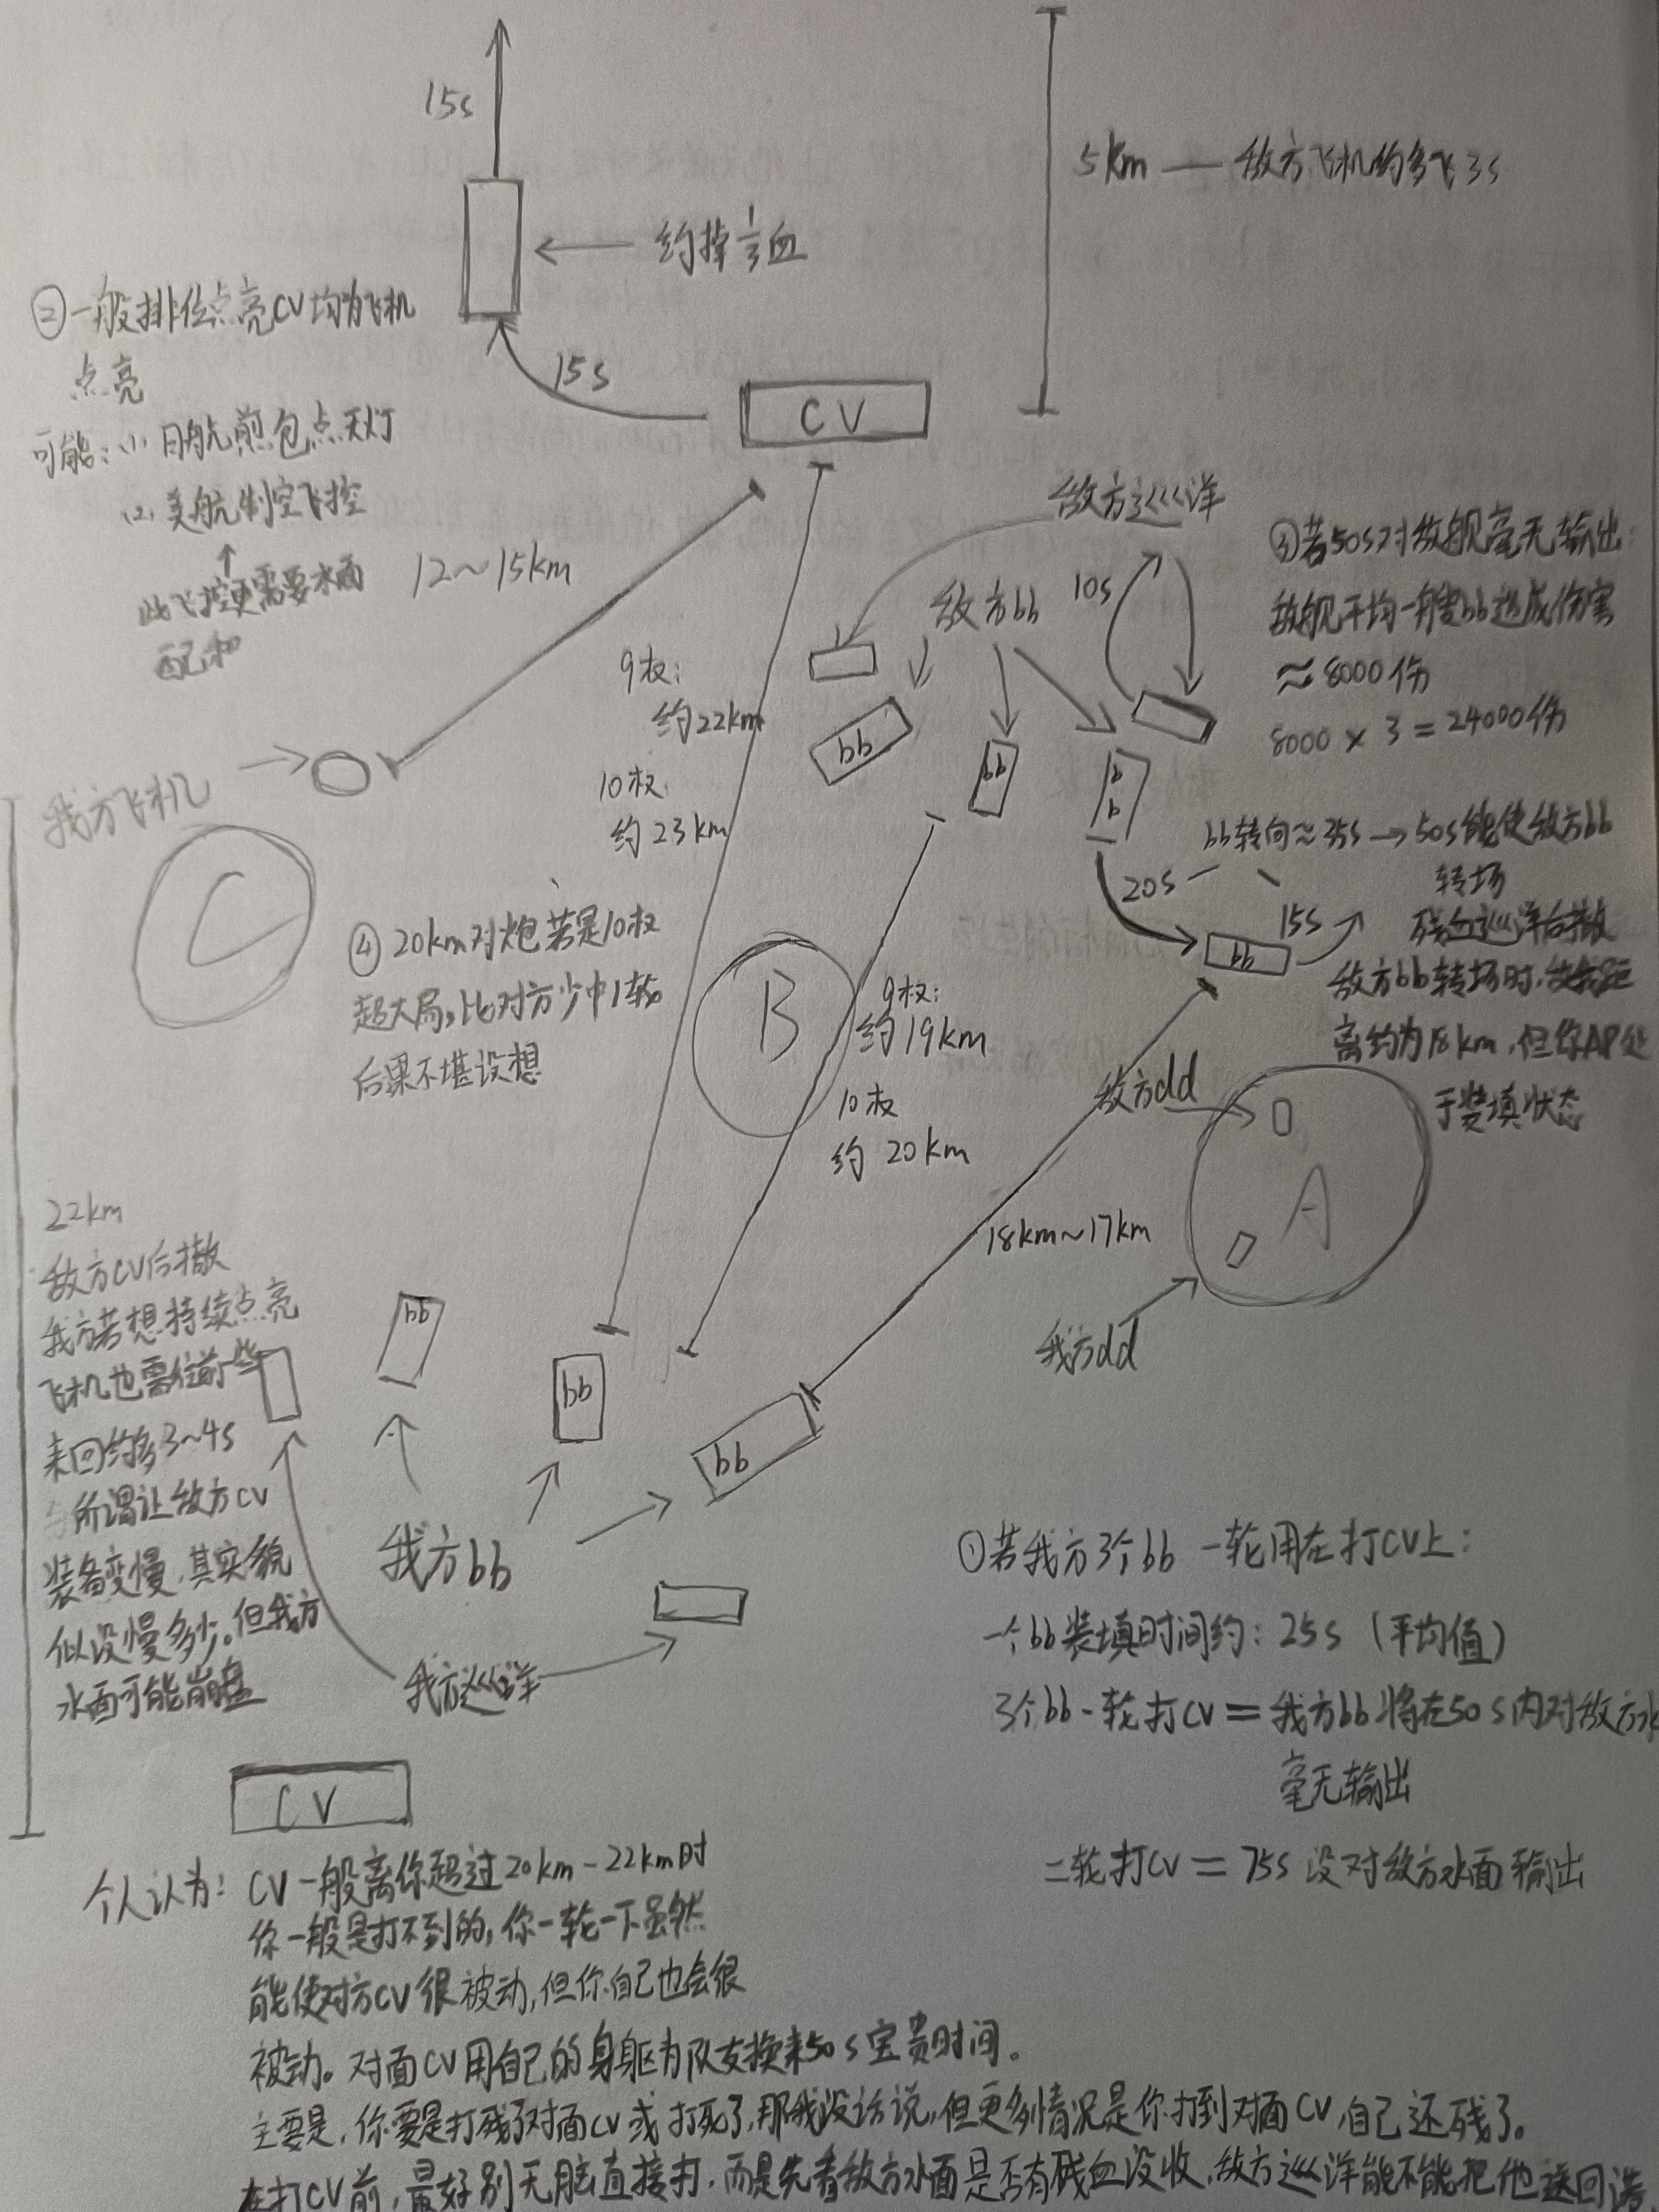 15s
5km — 敌方飞机约多飞3s
约掉1/3血
②一般排位点亮CV均为飞机
点亮
可能:(1) 日航煎包点天灯
(2) 美航制空飞控
↑
此飞控更需要水面
配和
15s
CV
12~15km
敌方巡洋
10s
敌方bb
③若50s对敌舰毫无输出
敌舰平均一艘bb造成伤害
≈8000伤
8000 × 3 = 24000伤
9衩:
约22km
10衩:
约23km
bb
bb
bb
我方飞机
C
bb转向≈35s→50s能使敌方bb
转场
残血巡洋后撤
20s
15s
bb
敌方bb转场时,
离约为18km,但你AP处
于装填状态
④20km对炮若是10衩
超大局,比对方少中1轮
后果不堪设想
B
9衩:
约19km
10衩
约20km
敌方dd
A
18km~17km
我方dd
22km
敌方CV后撤
我方若想持续点亮
飞机也需往前些
来回约多3~4s
所谓让敌方CV
装备变慢,其实貌
似没慢多少。但我方
水面可能崩盘
bb
bb
bb
我方bb
我方巡洋
CV
①若我方3个bb一轮用在打CV上:
一个bb装填时间约:25s (平均值)
3个bb一轮打CV = 我方bb将在50s内对敌方水
毫无输出
二轮打CV = 75s 没对敌方水面输出
个人认为: CV一般离你超过20km-22km时
你一般是打不到的,你一轮一下虽然
能使对方CV很被动,但你自己也会很
被动。对面CV用自己的身躯为队友换来50s宝贵时间。
主要是,你要是打残了对面CV或打死了,那我没话说,但更多情况是你打到对面CV,自己还残了。
在打CV前,最好别无脑直接打,而是先看敌方水面是否有残血没收,敌方巡洋能不能把他送回港